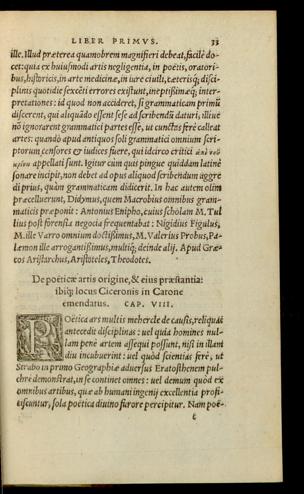 LIBER PRIMVS. 33
ille. Illud præterea quamobrem magnifieri debeat, facile do-
cet: quia ex huiusmodi artis negligentia, in poëtis, oratori-
bus, historicis, in arte medicinæ, in iure ciuili, cæterisq; disci-
plinis quotidie sexcēti errores existunt, ineptissimæq; inter-
pretationes: id quod non accideret, si grammaticam primū
discerent, qui aliquādo essent sese ad scribendū daturi, illius
nō ignorarent grammatici partes esse, ut cunctas ferè calleat
artes: quandò apud antiquos soli grammatici omnium scri-
ptorum censores & iudices fuere, qui idcirco critici ἀπὸ τοῦ
appellati sunt. Igitur cùm quis pingue quiddam latinè
sonare incipit, non debet ad opus aliquod scribendum aggre
di prius, quàm grammaticam didicerit. In hac autem olim
præcelluerunt, Didymus, quem Macrobius omnibus gram-
maticis præponit: Antonius Enipho, cuius scholam M. Tul
lius post forensia negocia frequentabat: Nigidius Figulus,
M. ille Varro omnium doctissimus, M. Valerius Probus, Pa-
læmon ille arrogantissimus, multiq; deinde alij. Apud Græ-
cos Aristarchus, Aristoteles, Theodotes.
De poëticæ artis origine, & eius præstantia:
ibiq; locus Ciceronis in Catone
emendatus. CAP. VIII.
POëtica ars multis mehercle de causis, reliquas
antecedit disciplinas: uel quia homines nul-
lam penè artem assequi possunt, nisi in illam
diu incubuerint: uel quòd scientias ferè, ut
Strabo in primo Geographiæ aduersus Eratosthenem pul-
chrè demonstrat, in se continet omnes: uel demum quòd ex
omnibus artibus, quæ ab humani ingenij excellentia profi-
ciscuntur, sola poëtica diuino furore percipitur. Nam poë-